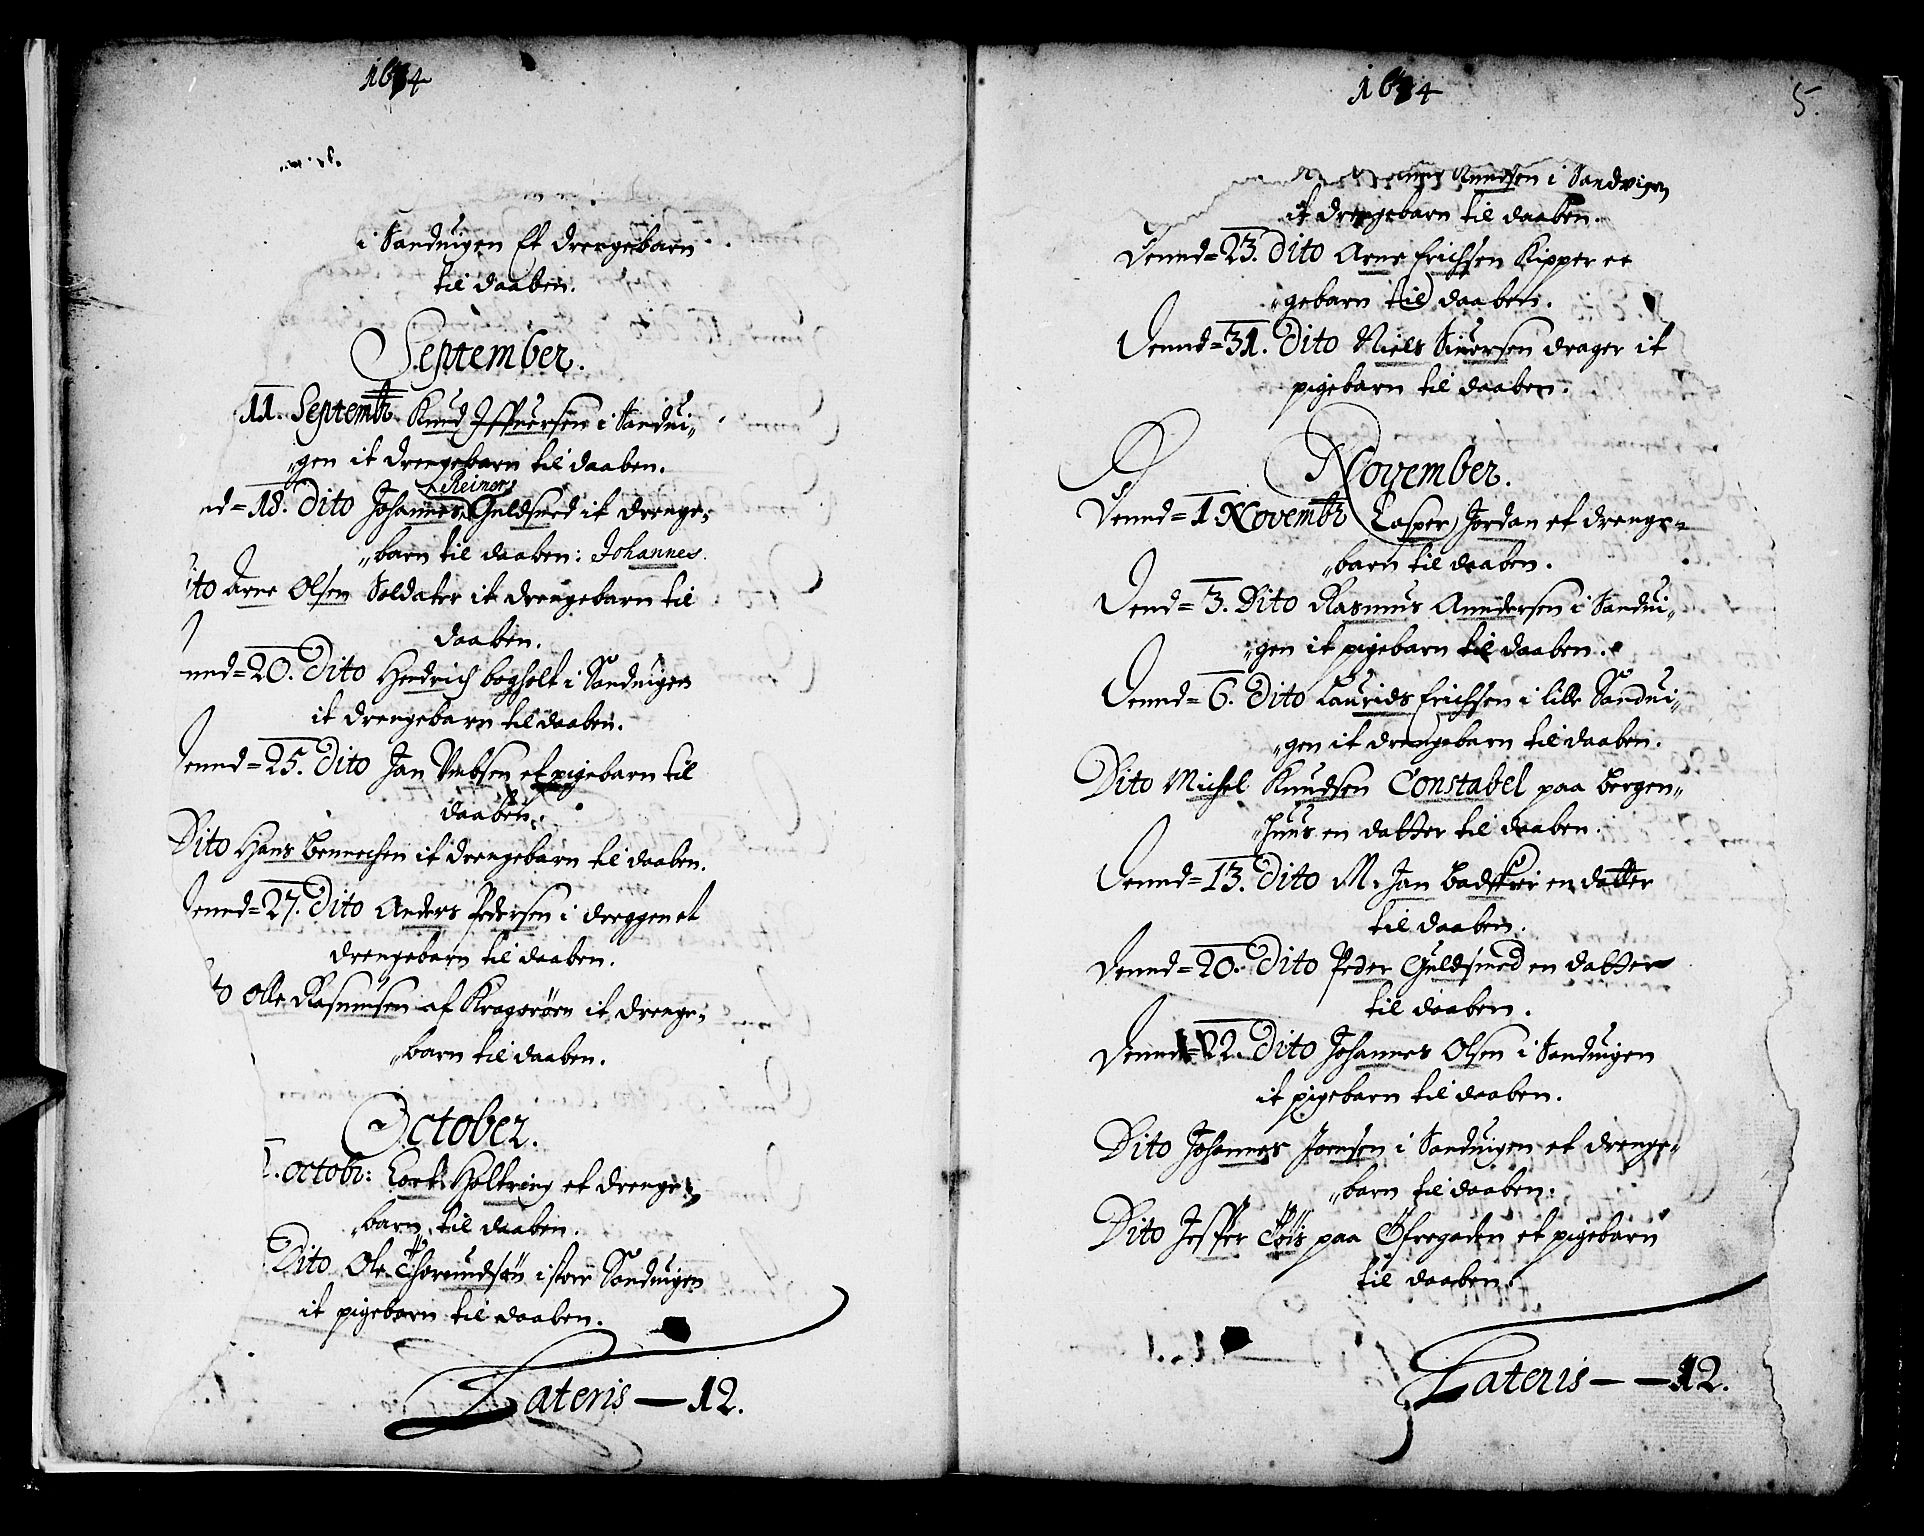 1634
i Sanduigen Et drengebarn
til daaben.
September.
11. Septembr Knud Iffuersen i Sandui„
„gen it drengebarn til daaben.
Reiners
nd=18. Dito Johannes Guldsmed it drenge„
„barn til daaben: Johannes.
ito Arne Olsen Soldater it drengebarn til
daaben.
nnd=20. Dito Hendrich bogholt i Sanduigen
it drengebarn til daaben.
ennd=25. Dito Jan et pigebarn til
daaben.
Dito Hans Bennechen it drengebarn til daaben.
ennd=27. Dito Anders Pedersen i dreggen et
drengebarn til daaben.
to Olle Rasmusen af Kragerøen it drenge„
„barn til daaben.
October.
octobr: Holtring et drenge„
„barn til daaben.
Dito Ole Thormundsøn i store Sanduigen
it pigebarn til daaben.
Lateris — 12.
1634
5.
Knudsen i Sandvigen
it drengebarn til daaben.
Dennd=23. Dito Arne Erichsen Kipper et
„gebarn til daaben.
Dennd=31. Dito Niels Siuersen drager it
pigebarn til daaben.
November.
Dennd=1 Novembr Casper Jordan et drenge„
„barn til daaben.
Dend=3. Dito Rasmus Anndersen i Sandui„
„gen it pigebarn til daaben.
Dennd=6. Dito Laurids Erichsen i lille Sandui„
„gen it drengebarn til daaben.
Dito Michel Knudsen Constabel paa Bergen„
„huus en datter til daaben.
Dennd=13. Dito M. Jan Badsker en datter
til daaben.
Dennd=20. Dito Peder Guldsmed en datter
til daaben.
Dennd=22. Dito Johannes Olsen i Sanduigen
it pigebarn til daaben.
Dito Johannes Joensen i Sanduigen et drenge„
„barn til daaben.
Dito Jesper paa Øfregaden et pigebarn
til daaben.
Lateris — — 12.